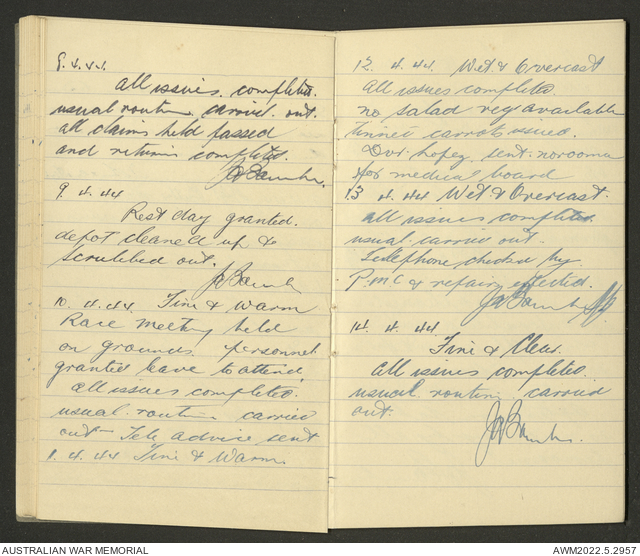 8.4.44.
All issues completed.
usual routine carried out.
all claims held passed
and returns completed.
9.4.44
Rest day granted.
depot cleaned up &
scrubbed out.
10.4.44. Fine & Warm
Race meeting held
on grounds personnel
granted leave to attend
all issues completed.
usual routine carried
out Tele advice sent
11.4.44 Fine & Warm
12.4.44. Wet & Overcast
All issues completed
no salad veg available
tinned carrots issued.
Dvr. sent
for medical board
13.4.44 Wet & Overcast.
all issues completed
usual carried out.
Telephone checked by
P.M.G & repairs effected.
14.4.44
Fine & Clear.
all issues completed.
usual routine carried
out.
AUSTRALIAN WAR MEMORIAL
AWM2022.5.2957